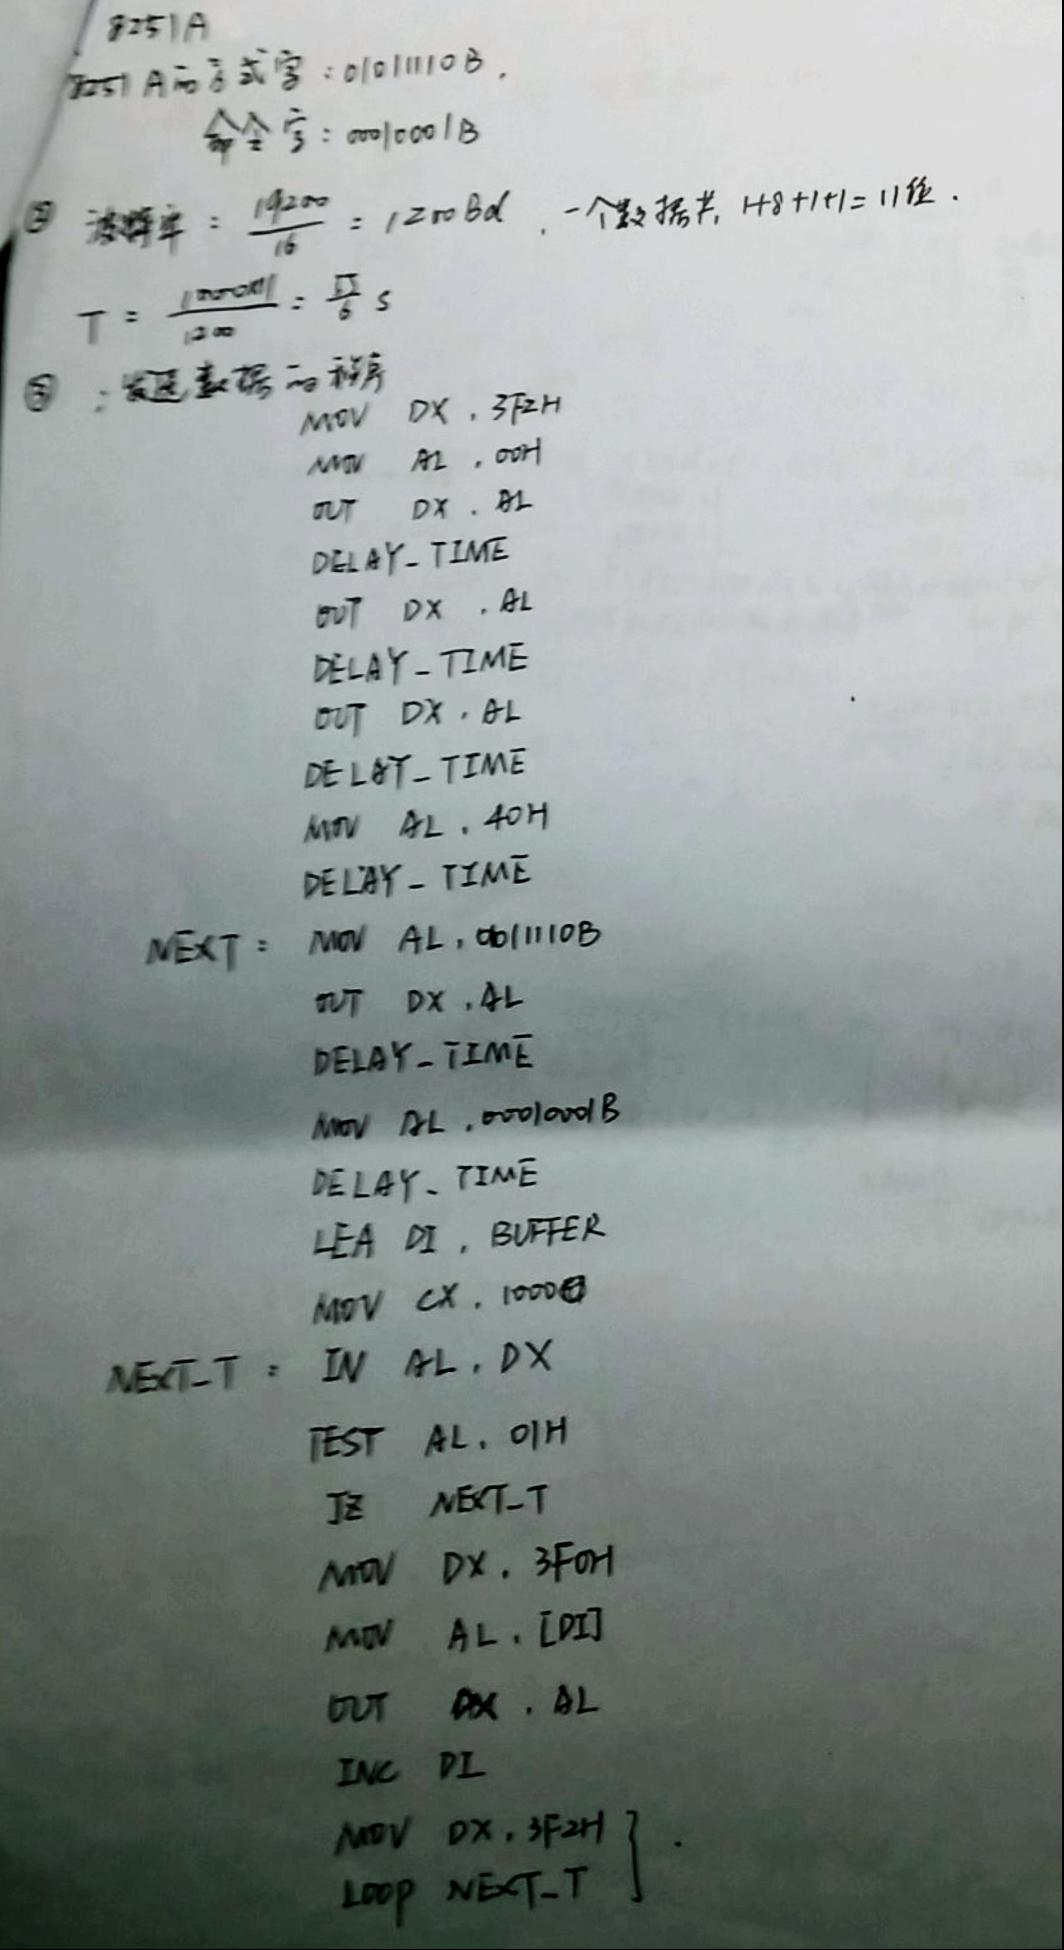 8251A
8251A的方式字:01011110B.
命令字:00010001B
② 波特率 = 19200/16 = 1200Bd , 一个数据共 1+8+1+1=11位.
T = 1000×11/1200 = 55/6 s
③ :发送数据的程序
MOV DX , 3F2H
MOV AL , 00H
OUT DX , AL
DELAY_TIME
OUT DX , AL
DELAY_TIME
OUT DX , AL
DELAY_TIME
MOV AL , 40H
DELAY_TIME
NEXT: MOV AL , 01011110B
OUT DX , AL
DELAY_TIME
MOV AL , 00010001B
DELAY_TIME
LEA DI , BUFFER
MOV CX , 1000
NEXT_T: IN AL , DX
TEST AL , 01H
JZ NEXT_T
MOV DX , 3F0H
MOV AL , [DI]
OUT DX , AL
INC DI
MOV DX , 3F2H
LOOP NEXT_T